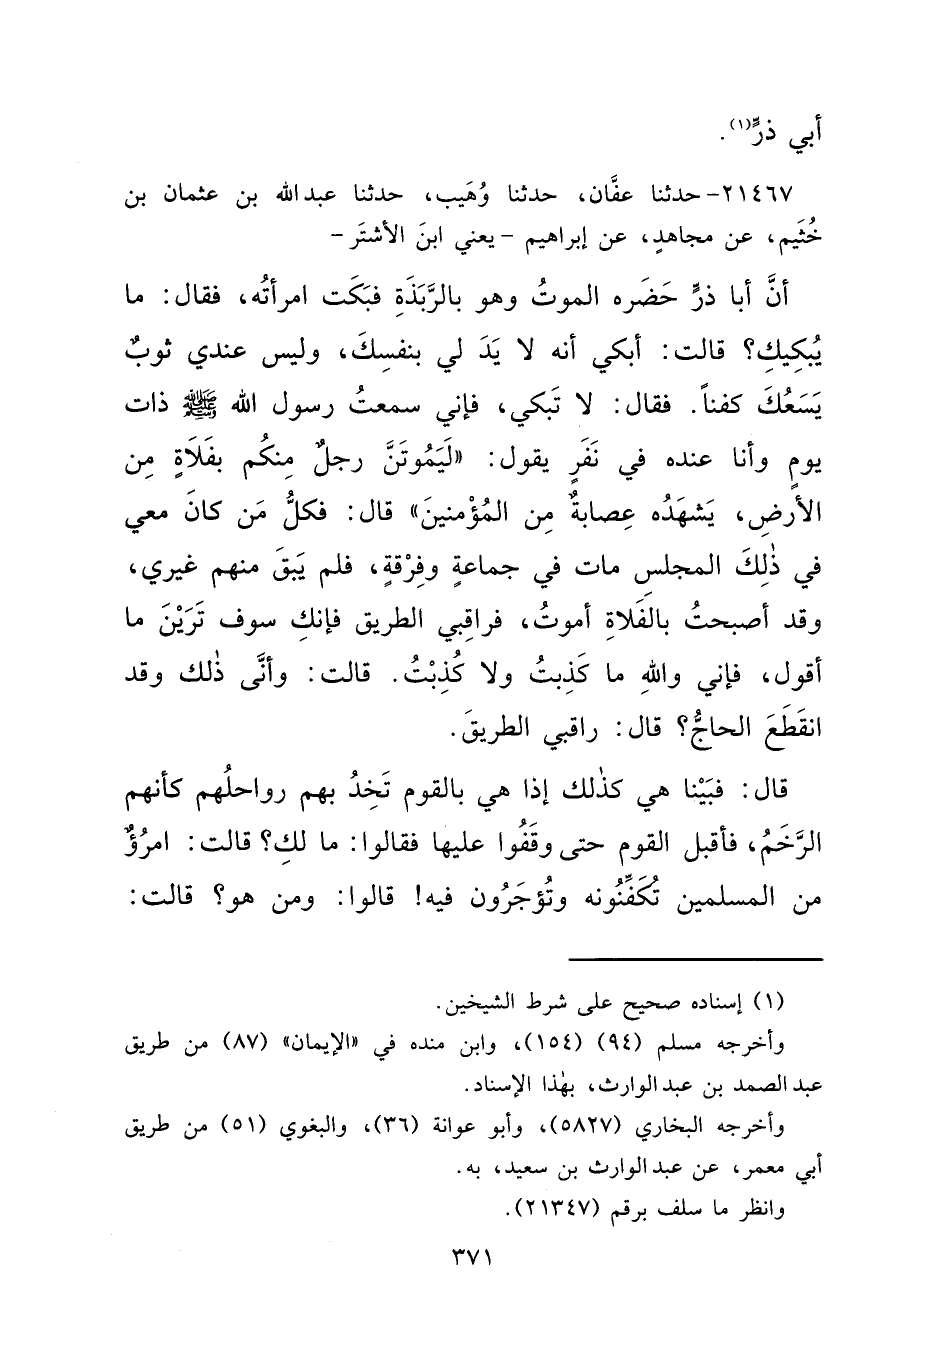 أبي ذرٍّ(١).
٢١٤٦٧- حدثنا عفَّان، حدثنا وُهَيب، حدثنا عبدالله بن عثمان بن
خُثَيم، عن مجاهدٍ، عن إبراهيم - يعني ابنَ الأشتَر -
أنَّ أبا ذرٍّ حَضَره الموتُ وهو بالرَّبَذَةِ فبَكَت امرأتُه، فقال: ما
يُبْكِيكِ؟ قالت: أبكي أنه لا يَدَ لي بنفسِكَ، وليس عندي ثوبٌ
يَسَعُكَ كفناً. فقال: لا تَبكي، فإني سمعتُ رسول الله ﷺ ذات
يومٍ وأنا عنده في نَفَرٍ يقول: «لَيَمُوتَنَّ رجلٌ مِنكُم بفَلَاةٍ مِن
الأَرضِ، يَشهَدُه عِصابةٌ مِن المُؤْمنينَ» قال: فكلُّ مَن كانَ معي
في ذٰلِكَ المجلسِ مات في جماعةٍ وفِرْقةٍ، فلم يَبقَ منهم غيري،
وقد أصبحتُ بالفَلاةِ أموتُ، فراقِبي الطريق فإنكِ سوف تَرَيْنَ ما
أقول، فإني واللهِ ما كَذبتُ ولا كُذِبْتُ. قالت: وأنَّى ذٰلك وقد
انقَطَعَ الحاجُّ؟ قال: راقبي الطريقَ.
قال: فبَيْنا هي كذٰلك إذا هي بالقوم تَخِدُ بهم رواحلُهم كأنهم
الرَّخَمُ، فأقبل القوم حتى وقَفُوا عليها فقالوا: ما لكِ؟ قالت: امرُؤٌ
من المسلمين تُكَفِّنُونه وتُؤجَرُون فيه! قالوا: ومن هو؟ قالت:
(١) إسناده صحيح على شرط الشيخين.
وأخرجه مسلم (٩٤) (١٥٤)، وابن منده في «الإيمان» (٨٧) من طريق
عبد الصمد بن عبد الوارث، بهٰذا الإسناد.
وأخرجه البخاري (٥٨٢٧)، وأبو عوانة (٣٦)، والبغوي (٥١) من طريق
أبي معمر، عن عبد الوارث بن سعيد، به.
وانظر ما سلف برقم (٢١٣٤٧).
٣٧١